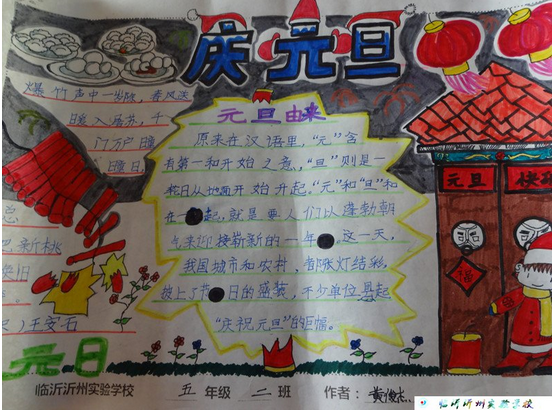 庆元旦
爆竹声中一岁除,春风送
暖入屠苏,千
门万户曈
曈日,
总
把新桃
换旧
王安石
元日
元旦由来
原来在汉语里,“元”含
有第一和开始之意,“旦”则是一
轮日从地面开始升起,“元”和“旦”和
在一起,就是要人们以蓬勃朝
气来迎接崭新的一年。这一天,
我国城市和农村,都张灯结彩,
披上了节日的盛装,不少单位悬起
“庆祝元旦”的巨幅。
元旦
快
福
临沂沂州实验学校 五年级 二班 作者:黄俊杰
临沂沂州实验学校